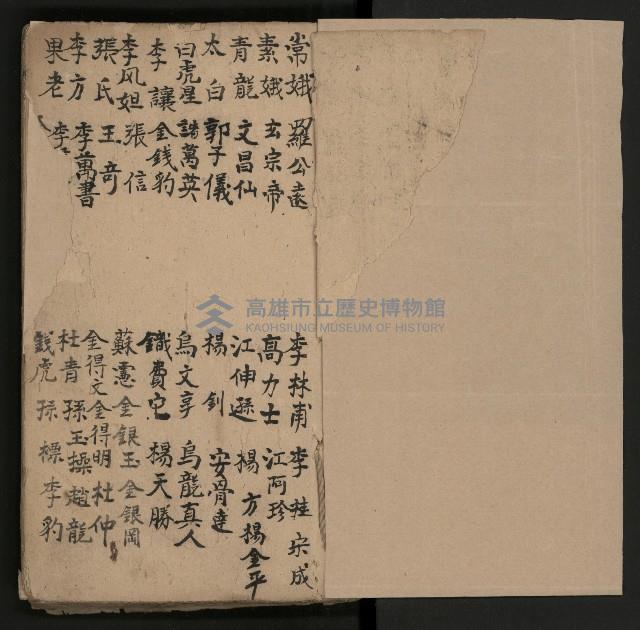 常娥 羅公遠
素娥 玄宗帝
青龍 文昌仙
太白 郭子儀
白虎星 諸萬英
李讓 金錢豹
李风妲 張信
張氏 王奇
李方 李萬書
果老 李
李林甫 李蓯 宋成
高力士 江阿珍
江伸遜 楊方 楊金平
楊釗 安骨達
烏文享 烏龍真人
鐡費它 楊天勝
蘇憲 金銀玉 金銀岡
金得文 金得明 杜仲
杜青 孫玉操 趙龍
錢虎 孫標 李豹
高雄市立歷史博物館
KAOHSIUNG MUSEUM OF HISTORY